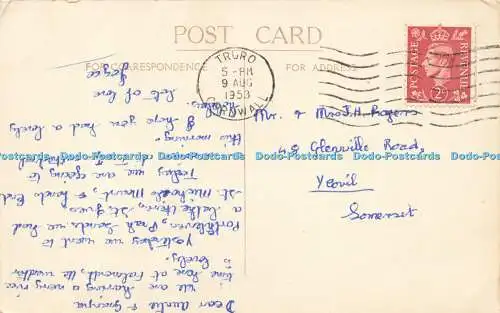 POST CARD
FOR CORRESPONDENCE
FOR ADDRESS
TRURO
5 - PM
9 AUG
1953
CORNWALL
POSTAGE
REVENUE
2D
Mr. & Mrs J.H. Rogers
Glenville Road,
Yeovil
Somerset
Dear Auntie &
We are having a very nice
time here at Falmouth, the weather
is lovely.
Yesterday we went to
Porthleven, Praa Sands we had
a bathe there, St. Ives,
St. Michaels Mount, & Lands End
Today we are going to
this morning.
I hope you had a lovely
holiday.
Lots of love
Joyce
Postcards Dodo-Postcards Dodo-Postcards Dodo-Postcards Dodo-Postcards Dodo-Postcards Dodo